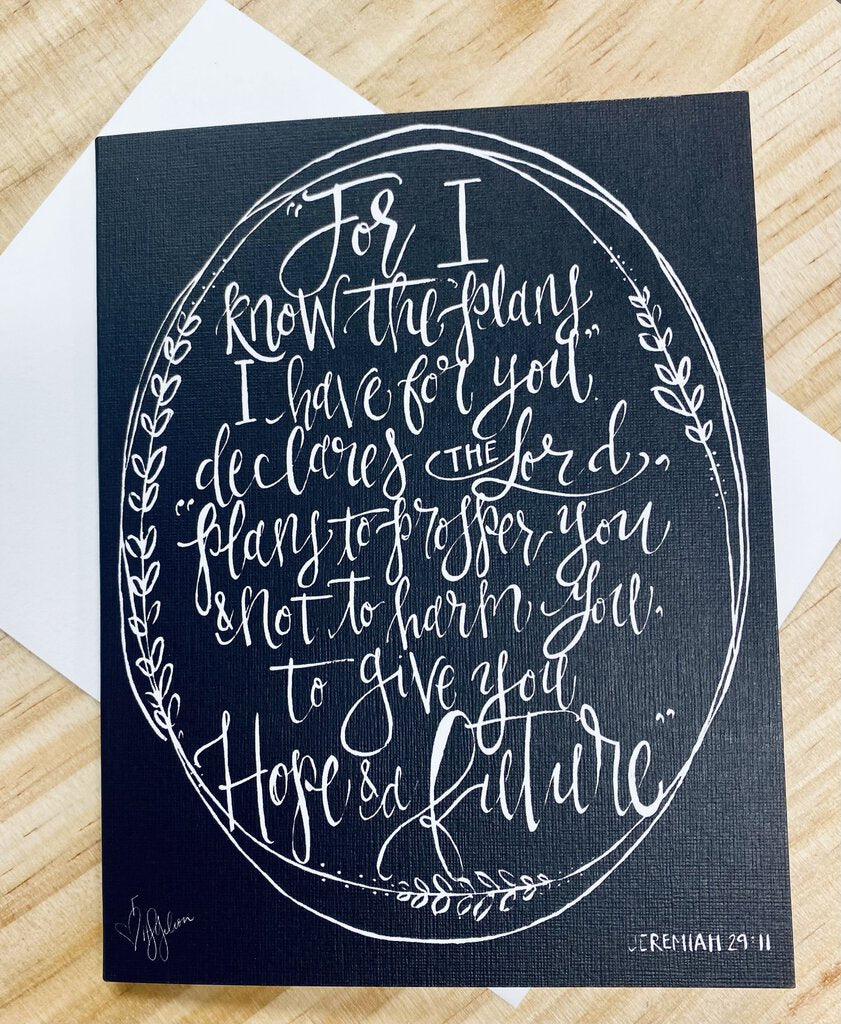 "For I
know the plans
I have for you"
declares THE Lord,
"plans to prosper you
& not to harm you,
to give you
Hope & a future"
JEREMIAH 29:11